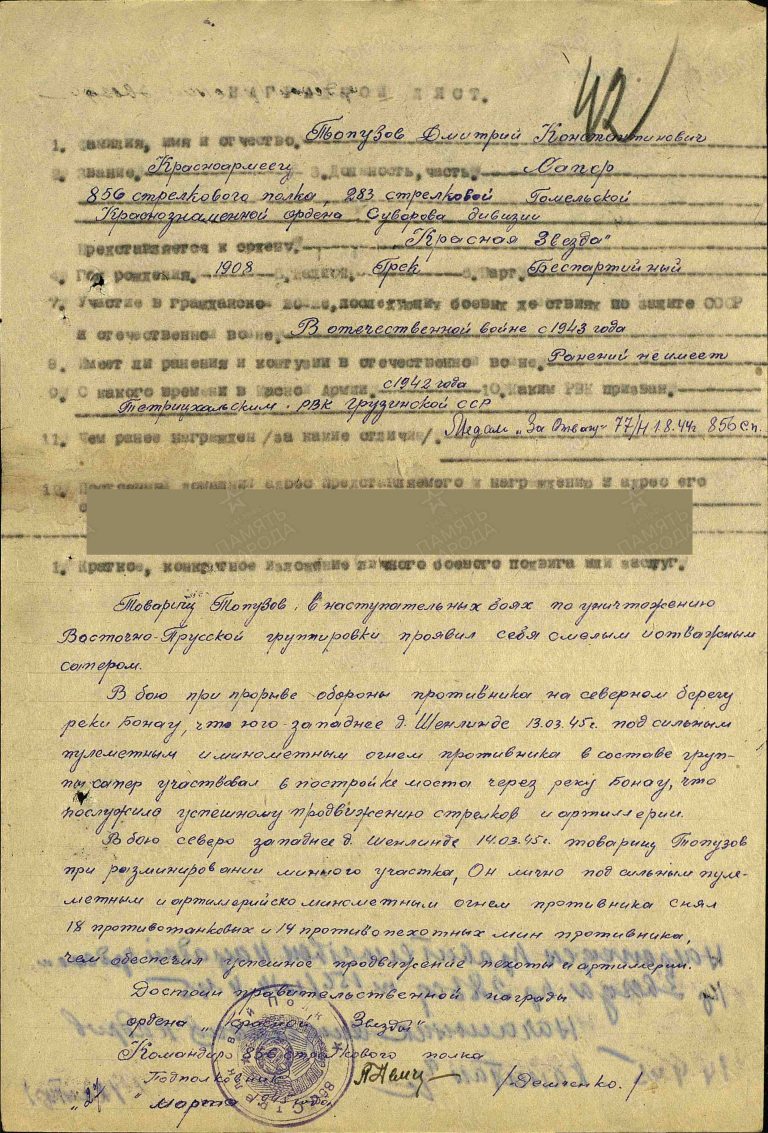 НАГРАДНОЙ ЛИСТ.
42
1. Фамилия, имя и отчество. Топузов Дмитрий Константинович
2. Звание. Красноармеец 3. Должность, часть. Сапер
856 стрелкового полка, 283 стрелковой Гомельской
Краснознаменной ордена Суворова дивизии
Представляется к ордену. "Красная Звезда"
4. Год рождения. 1908 5. Национ. Грек 6. Парт. Беспартийный
7. Участие в гражданской войне, последующих боевых действиях по защите СССР
и отечественной войне. В отечественной войне с 1943 года
8. Имеет ли ранения и контузии в отечественной войне. Ранений не имеет
9. С какого времени в Красной Армии. с 1942 года 10. Каким РВК призван.
Тетрицхальским РВК Грузинской ССР
11. Чем ранее награжден /за какие отличия/. Медаль "За Отвагу" 77/н 1.8.44г. 856 сп.
12. Постоянный домашний адрес представляемого к награждению и адрес его
ПАМЯТЬ НАРОДА ПАМЯТЬ НАРОДА ПАМЯТЬ НАРОДА
1. Краткое, конкретное изложение личного боевого подвига или заслуг.
Товарищ Топузов, в наступательных боях по уничтожению
Восточно-Прусской группировки проявил себя смелым и отважным
сапером.
В бою при прорыве обороны противника на северном берегу
реки Бонау, что юго-западнее д. Шенлинде 13.03.45г. под сильным
пулеметным и минометным огнем противника в составе груп-
пы сапер участвовал в постройке моста через реку Бонау, что
послужило успешному продвижению стрелков и артиллерии.
В бою северо западнее д. Шенлинде 14.03.45г. товарищ Топузов
при разминировании минного участка, Он лично под сильным пуле-
метным и артиллерийско минометным огнем противника снял
18 противотанковых и 14 противопехотных мин противника,
чем обеспечил успешное продвижение пехоты и артиллерии.
Достоин правительственной награды
ордена "Красной Звезды"
Командир 856 стрелкового полка
Подполковник /Демченко./
"27" Марта 1945 года